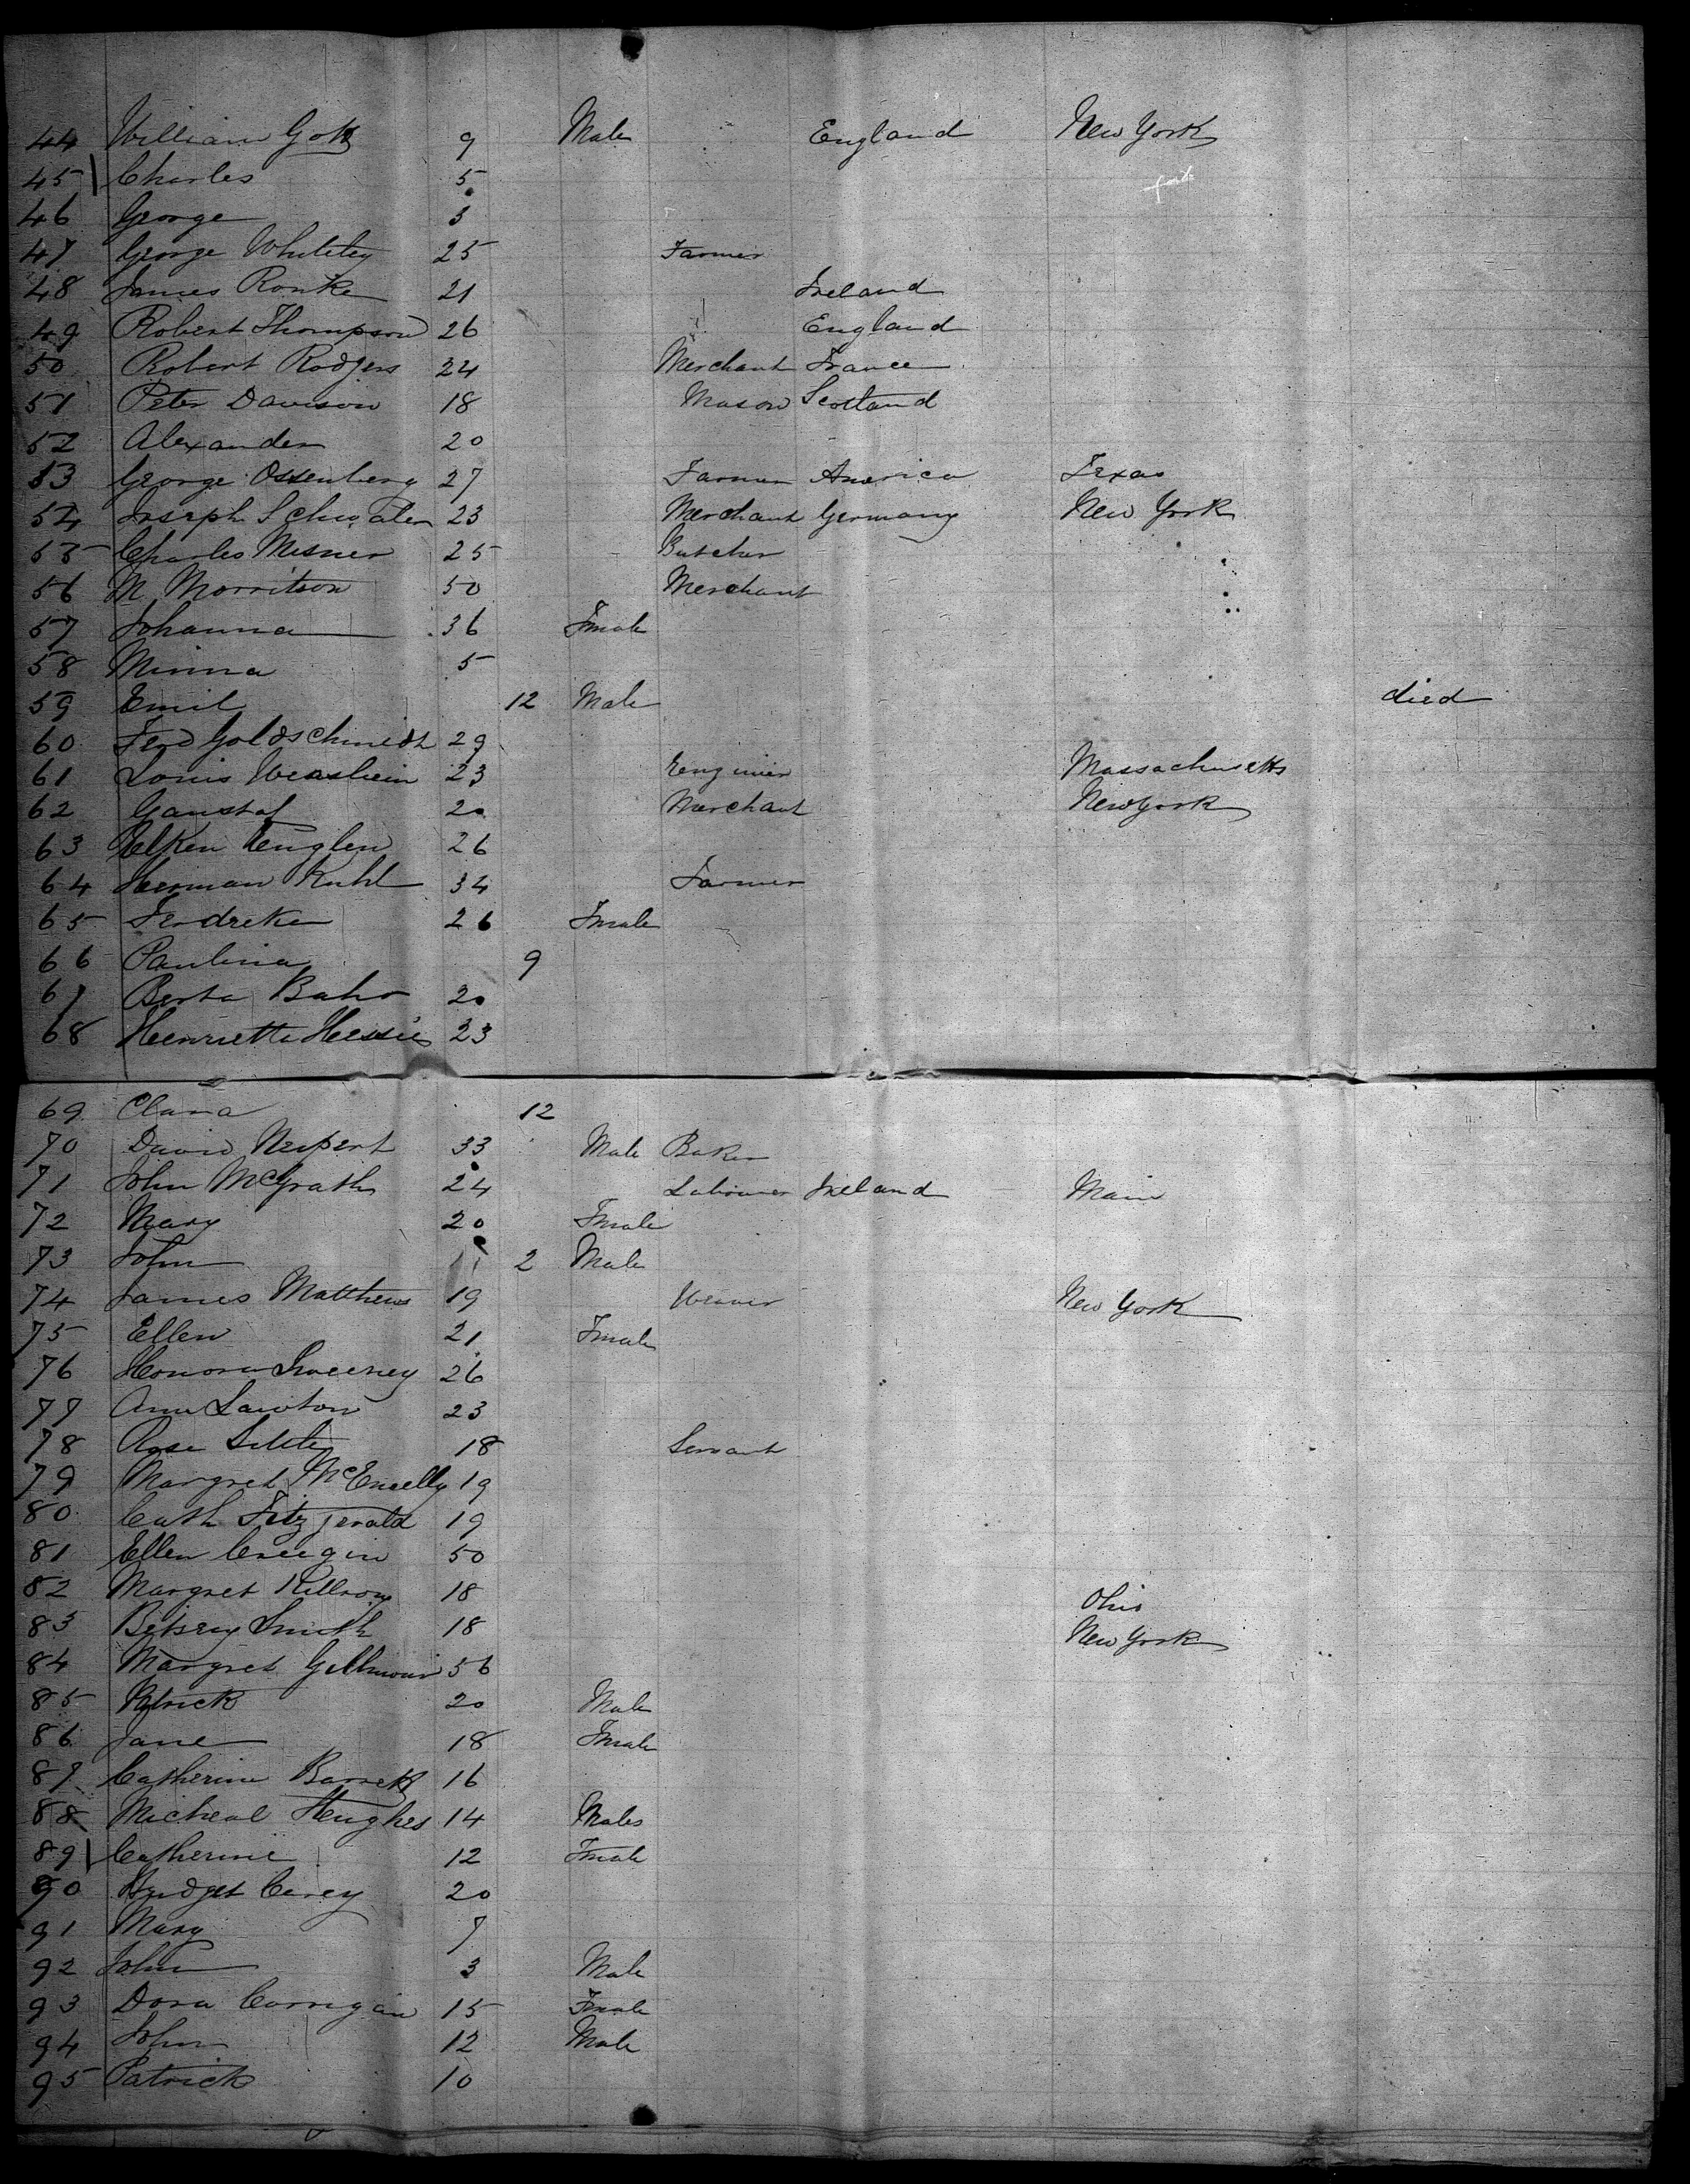 44 William Gott 9 Male England New York
45 Charles 5
46 George 3
47 George Whiteley 25 Farmer
48 James Rorike 21 Ireland
49 Robert Thompson 26 England
50 Robert Rodgers 24 Merchant France
51 Peter Davison 18 Mason Scotland
52 Alexander 20
53 George Ossenberg 27 Farmer America Texas
54 Joseph 23 Merchant Germany New York
55 Charles Mesner 25 Butcher
56 M Morritson 50 Merchant
57 Johanna 36 Fmale
58 Minna 5
59 Emil 12 Male died
60 Ferd Goldschmidt 29
61 Louis 23 Massachusetts
62 Gaustaf 20 Merchant New York
63 26
64 Herman Kuhl 34 Farmer
65 Ferdreke 26 Fmale
66 Paulina 9
67 Berta Bahr 20
68 Henriette Hessie 23
69 Clara 12
70 David Neipert 33 Male Baker
71 John McGrath 24 Labourer Ireland Main
72 Mary 20 Fmale
73 John 2 Male
74 James Matthews 19 Weaver New York
75 Ellen 21 Fmale
76 Honora Sweeney 26
77 Ann Lawton 23
78 Rose 18 Servant
79 Margret 19
80 Cath Fitzgerald 19
81 Ellen Creegin 50
82 Margret Killroy 18 Ohio
83 Betsey Smith 18 New York
84 Margret Gillmour 56
85 Patrick 20 Male
86 Jane 18 Fmale
87 Catherine Barrett 16
88 Micheal Heughes 14 Males
89 Catherine 12 Fmale
90 Bridget Carey 20
91 Mary 7
92 John 3 Male
93 Dora Corrigan 15 Fmale
94 John 12 Male
95 Patrick 10